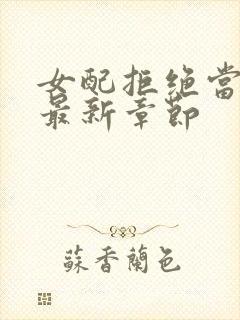 女配拒绝当
最新章节
蘇香蘭色